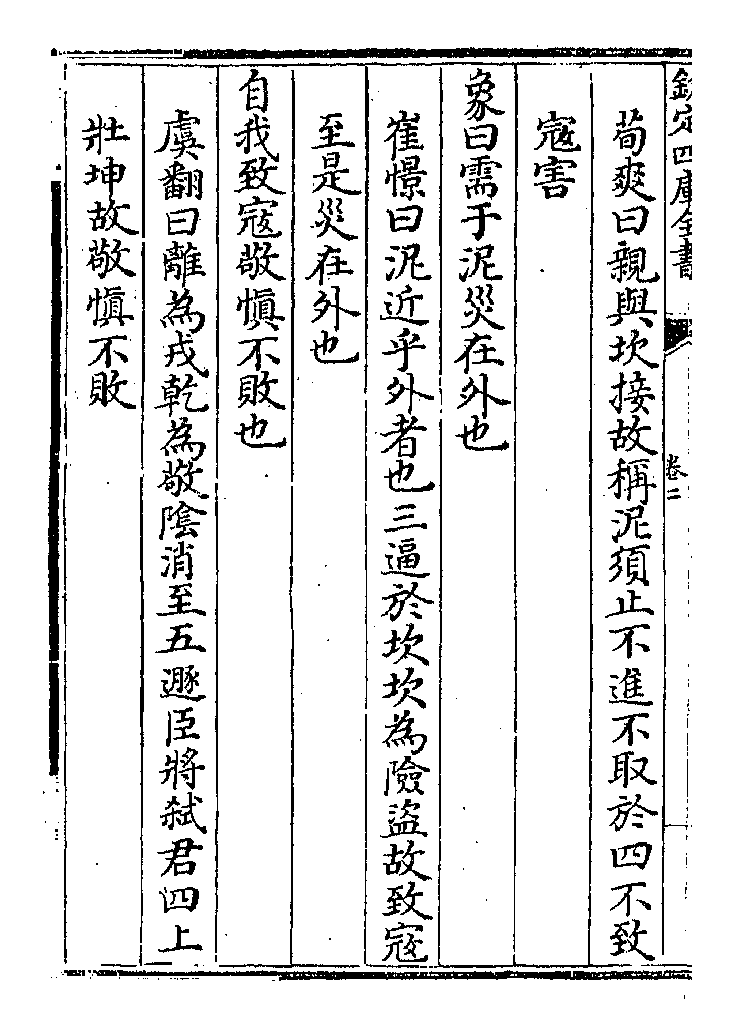 欽定四庫全書
卷二
荀爽曰親與坎接故稱泥須止不進不取於四不致
寇害
象曰需于泥災在外也
崔憬曰泥近乎外者也三逼於坎坎為險盜故致寇
至是災在外也
自我致寇敬慎不敗也
虞翻曰離為戎乾為敬陰消至五遯臣將弑君四上
壯坤故敬慎不敗